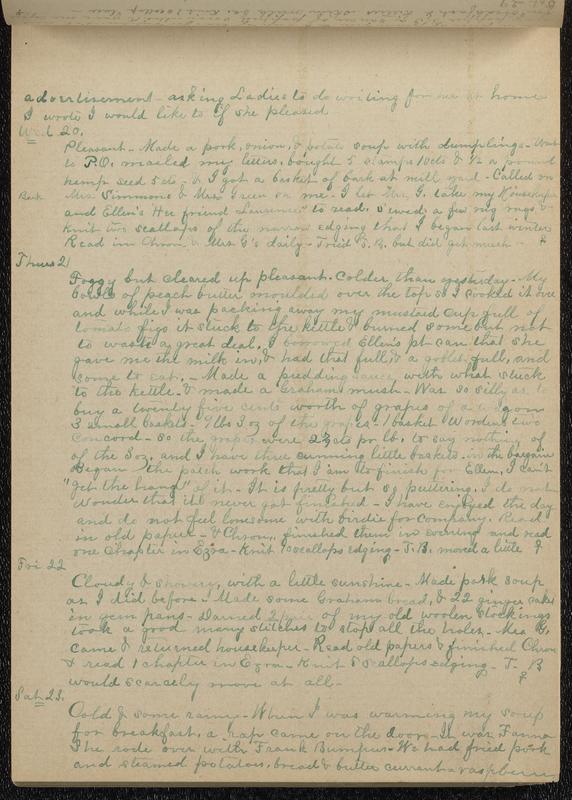 advertisement - asking Ladies to do writing for me at home
I wrote I would like to if she pleased
Wed 20.
Pleasant - Made a pork, onion, & potato soup with dumplings - Went
to P.O. mailed my letters, bought 5 stamps 10cts & ½ a pound
hemp seed 5cts - & I got a basket of bark at mill yard - Called on
Bark
Mrs Simmons & Mrs Green on me. I let Mrs G. take my Housekeeper
and Ellen's Her friend Laurence" to read. Sewed a few rug rags &
knit two scallops of the narrow edging that I began last winter
Read in Chron & Mrs G's daily - Tried T. B. but did not much -
Thurs 21
Foggy but cleared up pleasant. Colder than yesterday - My
bowls of peach butter moulded over the top so I cooked it over
and while I was packing away my mustard cup full of
tomato figs it stuck to the kettle & burned some but not
to waste a great deal. I borrowed Ellen's pt can that she
gave me the milk in & had that full, & a goblet full, and
some to eat. - Made a pudding sauce with what stuck
to the kettle - & made a Graham mush - Was so silly as to
buy a twenty five cents worth of grapes of a wagon
3 small baskets - 9 lbs 3 oz of the grapes - 1 basket Worden, two
Concord - so the grapes were 2¾ cts pr lb. to say nothing of
of the 3oz. and I have three cunning little baskets in the bargain
Began the patch work that I am to finish for Ellen, I can't
"get the hang" of it - It is pretty but so puttering, I do not
wonder that it never got finished - I have enjoyed the day
and do not feel lonesome with birdie for company. Read
in old papers - & Chron, finished them in evening and read
one Chapter in Ezra - Knit scallops edging - T. B. moved a little
Fri 22
Cloudy & showery, with a little sunshine - Made pork soup
as I did before. Made some Graham bread, & 22 ginger cakes
in gem pans - Darned 2 pair of my old woolen stockings
took a good many stitches to stop all the holes - Mrs G.
came & returned housekeeper - Read old papers & finished Chron
& read 1 chapter in Ezra - Knit 5 scallops edging - T. B
would scarcely move at all -
Sat 23.
Cold & some rainy - When I was warming my soup
for breakfast, a rap came on the door - It was Fanna
She rode over with Frank Bumpus - We had fried pork
and steamed potatoes, bread & butter currant & raspberry